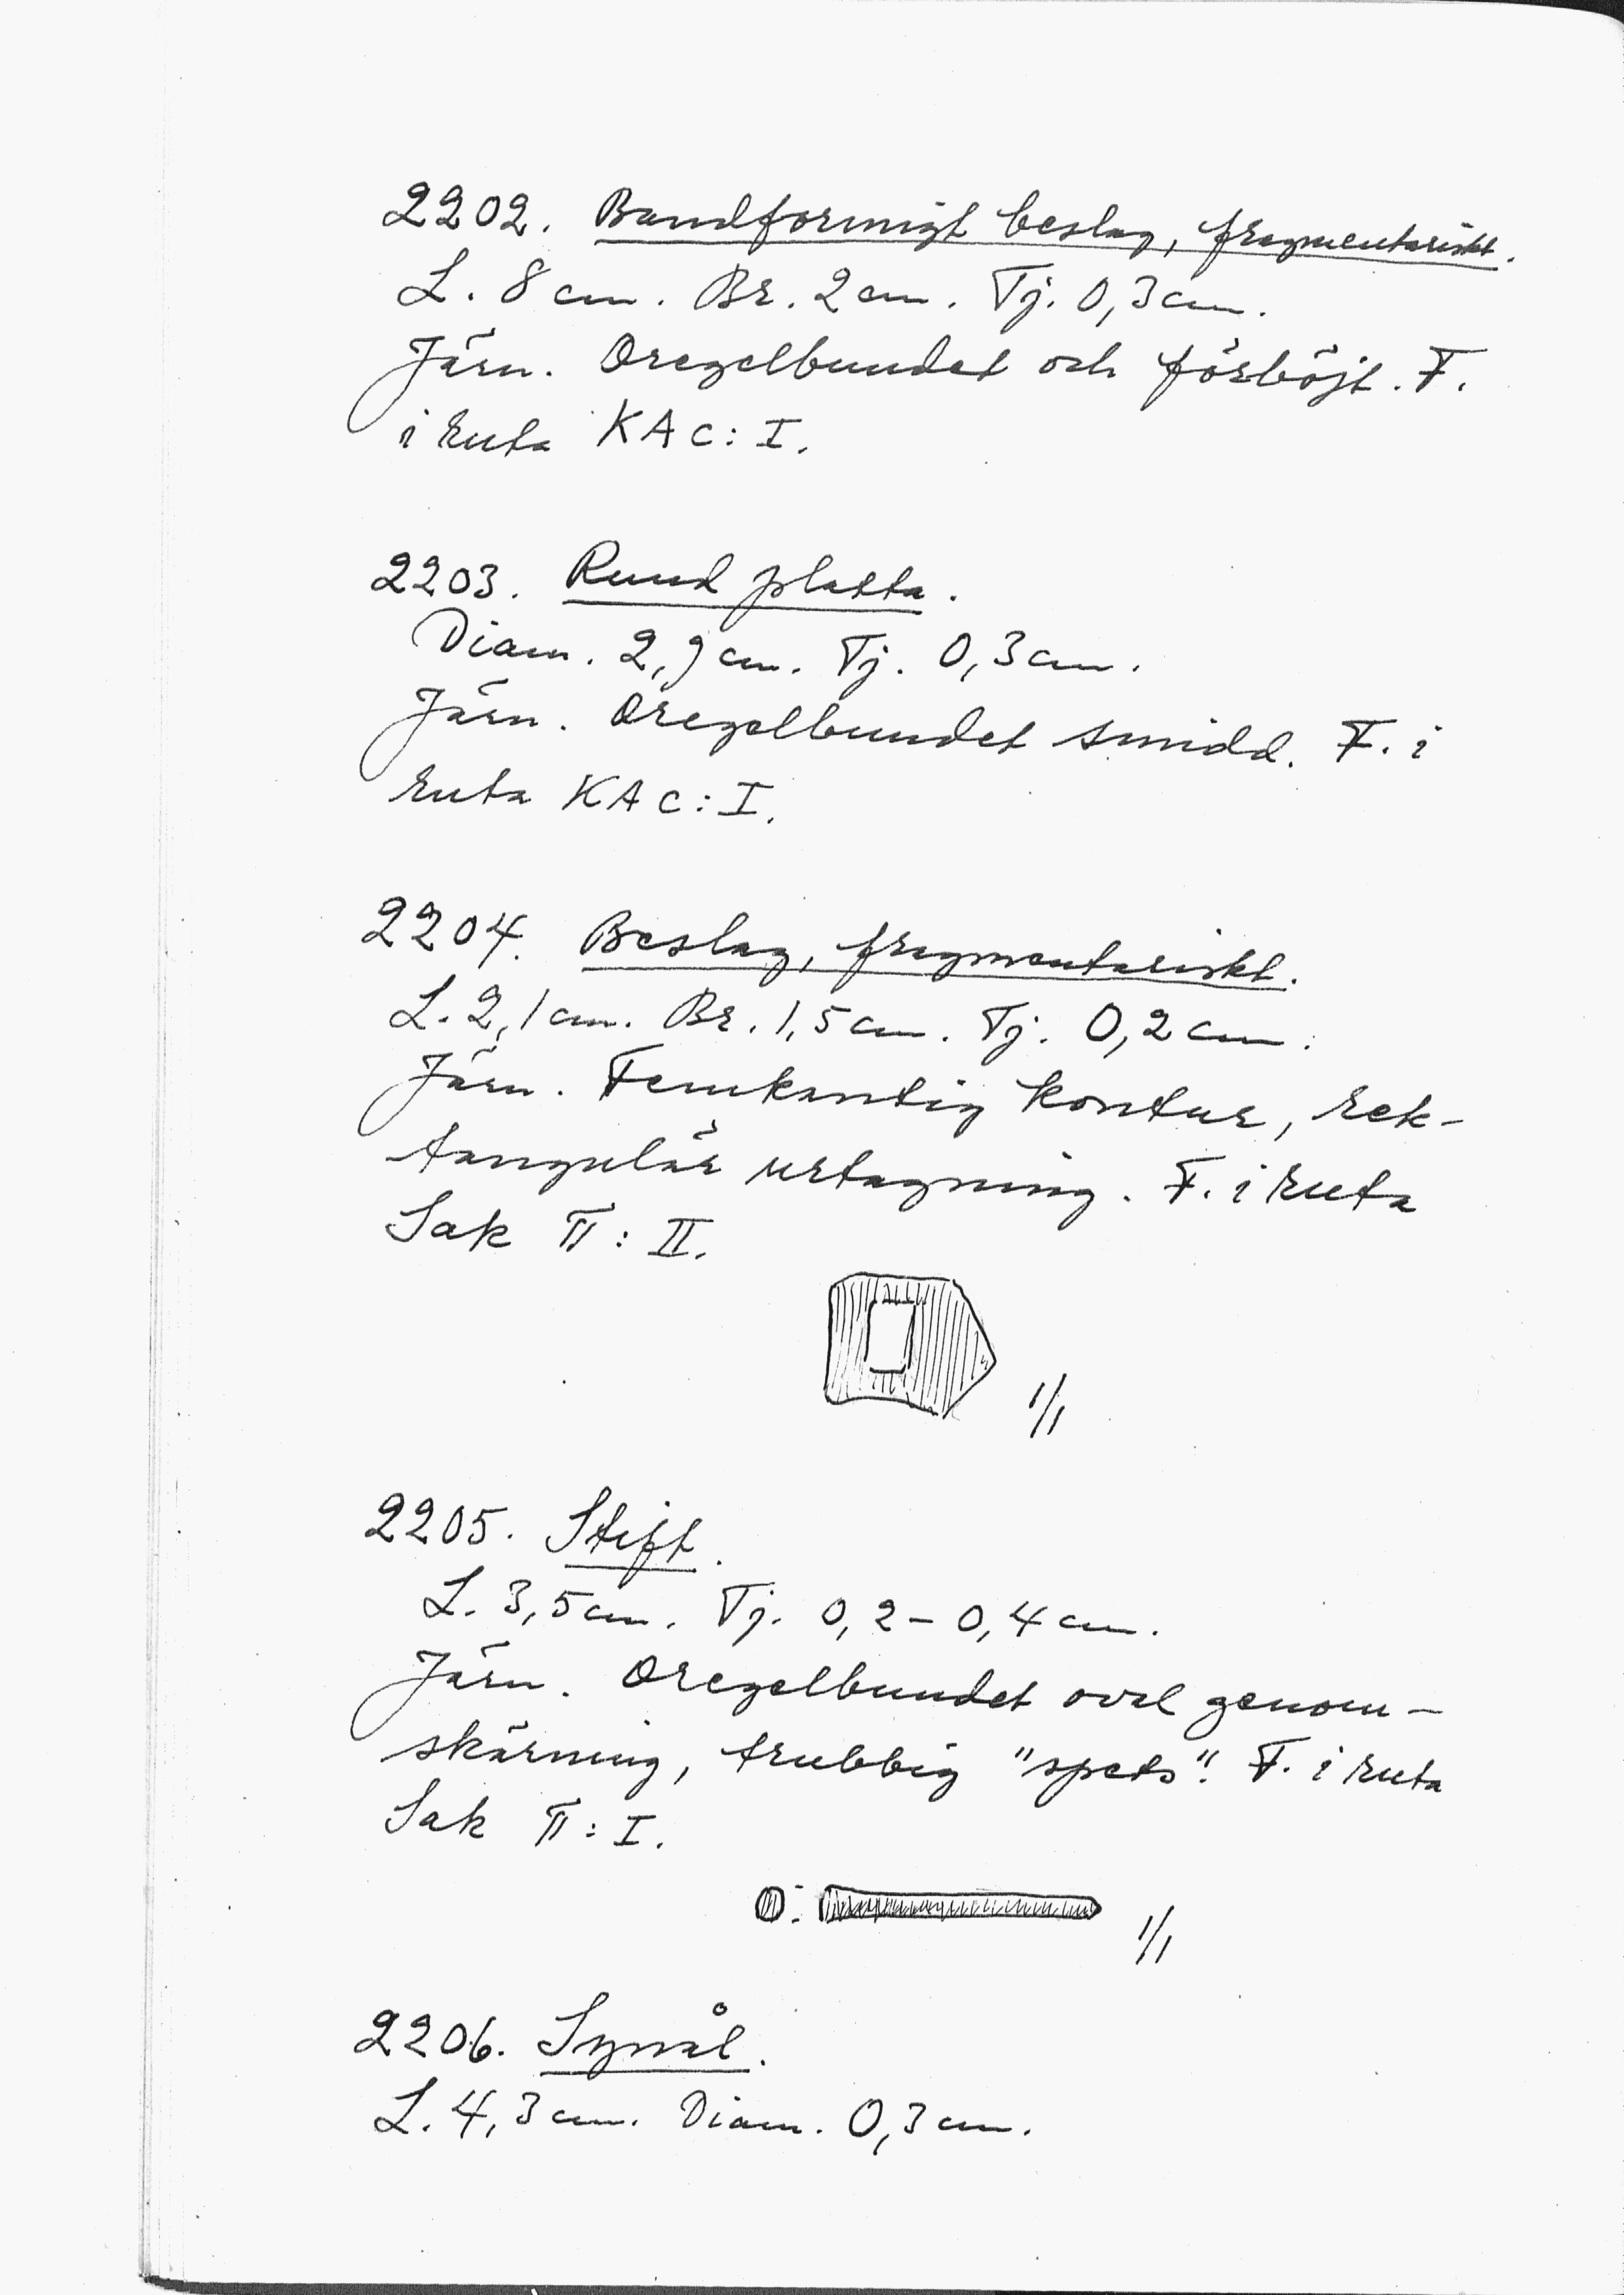 2202. Bandformigt beslag, fragmentariskt.
L. 8 cm. Br. 2 cm. Tj. 0,3 cm.
Järn. Oregelbundet och förböjt. F.
i ruta KA c: I.
2203. Rund platta.
Diam. 2,9 cm. Tj. 0,3 cm.
Järn. Oregelbundet smidd. F. i
ruta KA c: I.
2204. Beslag, fragmentariskt.
L. 2,1 cm. Br. 1,5 cm. Tj. 0,2 cm.
Järn. Femkantig kontur, rek-
tangulär urtagning. F. i ruta
Sak II: II.
1/1
2205. Stift.
L. 3,5 cm. Tj. 0,2 – 0,4 cm.
Järn. Oregelbundet oval genom-
skärning, trubbig "spets". F. i ruta
Sak II: I.
1/1
2206. Synål.
L. 4,3 cm. Diam. 0,3 cm.